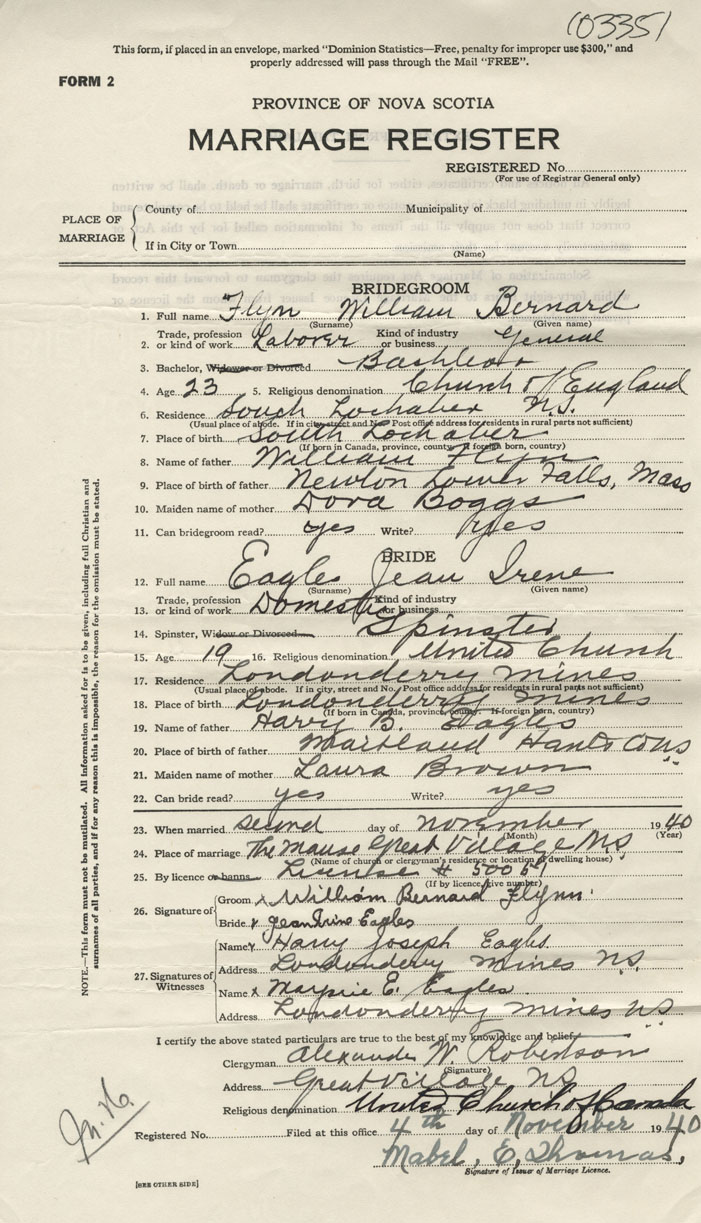 (03351
This form, if placed in an envelope, marked "Dominion Statistics—Free, penalty for improper use $300," and
properly addressed will pass through the Mail "FREE".
FORM 2
PROVINCE OF NOVA SCOTIA
MARRIAGE REGISTER
REGISTERED No.
(For use of Registrar General only)
PLACE OF MARRIAGE
County of Municipality of
If in City or Town
(Name)
BRIDEGROOM
1. Full name Flyn William Bernard
(Surname) (Given name)
2. Trade, profession or kind of work Laborer Kind of industry or business General
3. Bachelor, Widower or Divorced Bachleor
4. Age 23 5. Religious denomination Church of England
6. Residence South Lochaber N.S.
(Usual place of abode. If in city, street and No. Post office address for residents in rural parts not sufficient)
7. Place of birth South Lochaber
(If born in Canada, province, county. If foreign born, country)
8. Name of father William Flyn
9. Place of birth of father Newton Lower Falls, Mass
10. Maiden name of mother Dora Boggs
11. Can bridegroom read? yes Write? yes
BRIDE
12. Full name Eagles Jean Irene
(Surname) (Given name)
13. Trade, profession or kind of work Domestic Kind of industry or business
14. Spinster, Widow or Divorced Spinster
15. Age 19 16. Religious denomination United Church
17. Residence Londonderry mines
(Usual place of abode. If in city, street and No. Post office address for residents in rural parts not sufficient)
18. Place of birth Londonderry mines
(If born in Canada, province, county. If foreign born, country)
19. Name of father Harry B. Eagles
20. Place of birth of father Maitland Hants Co NS
21. Maiden name of mother Laura Brown
22. Can bride read? yes Write? yes
23. When married second day of November 1940
(Month) (Year)
24. Place of marriage The Manse Great Village N.S.
(Name of church or clergyman's residence or location of dwelling house)
25. By licence or banns License #
(If by licence, give number)
26. Signature of
Groom x William Bernard Flynn.
Bride x Jean Irine Eagles
27. Signatures of Witnesses
Name x Harry Joseph Eagles
Address Londonderry Mines N.S.
Name x Marjorie E. Eagles
Address Londonderry mines NS
I certify the above stated particulars are true to the best of my knowledge and belief.
Clergyman Alexander W. Robertson
(Signature)
Address Great Village NS
Religious denomination United Church of Canada
Registered No. Filed at this office 4th day of November 1940
Mabel, E, Thomas,
Signature of Issuer of Marriage Licence.
[SEE OTHER SIDE]
NOTE.—This form must not be mutilated. All Information asked for is to be given, including full Christian and
surnames of all parties, and if for any reason this is impossible, the reason for the omission must be stated.